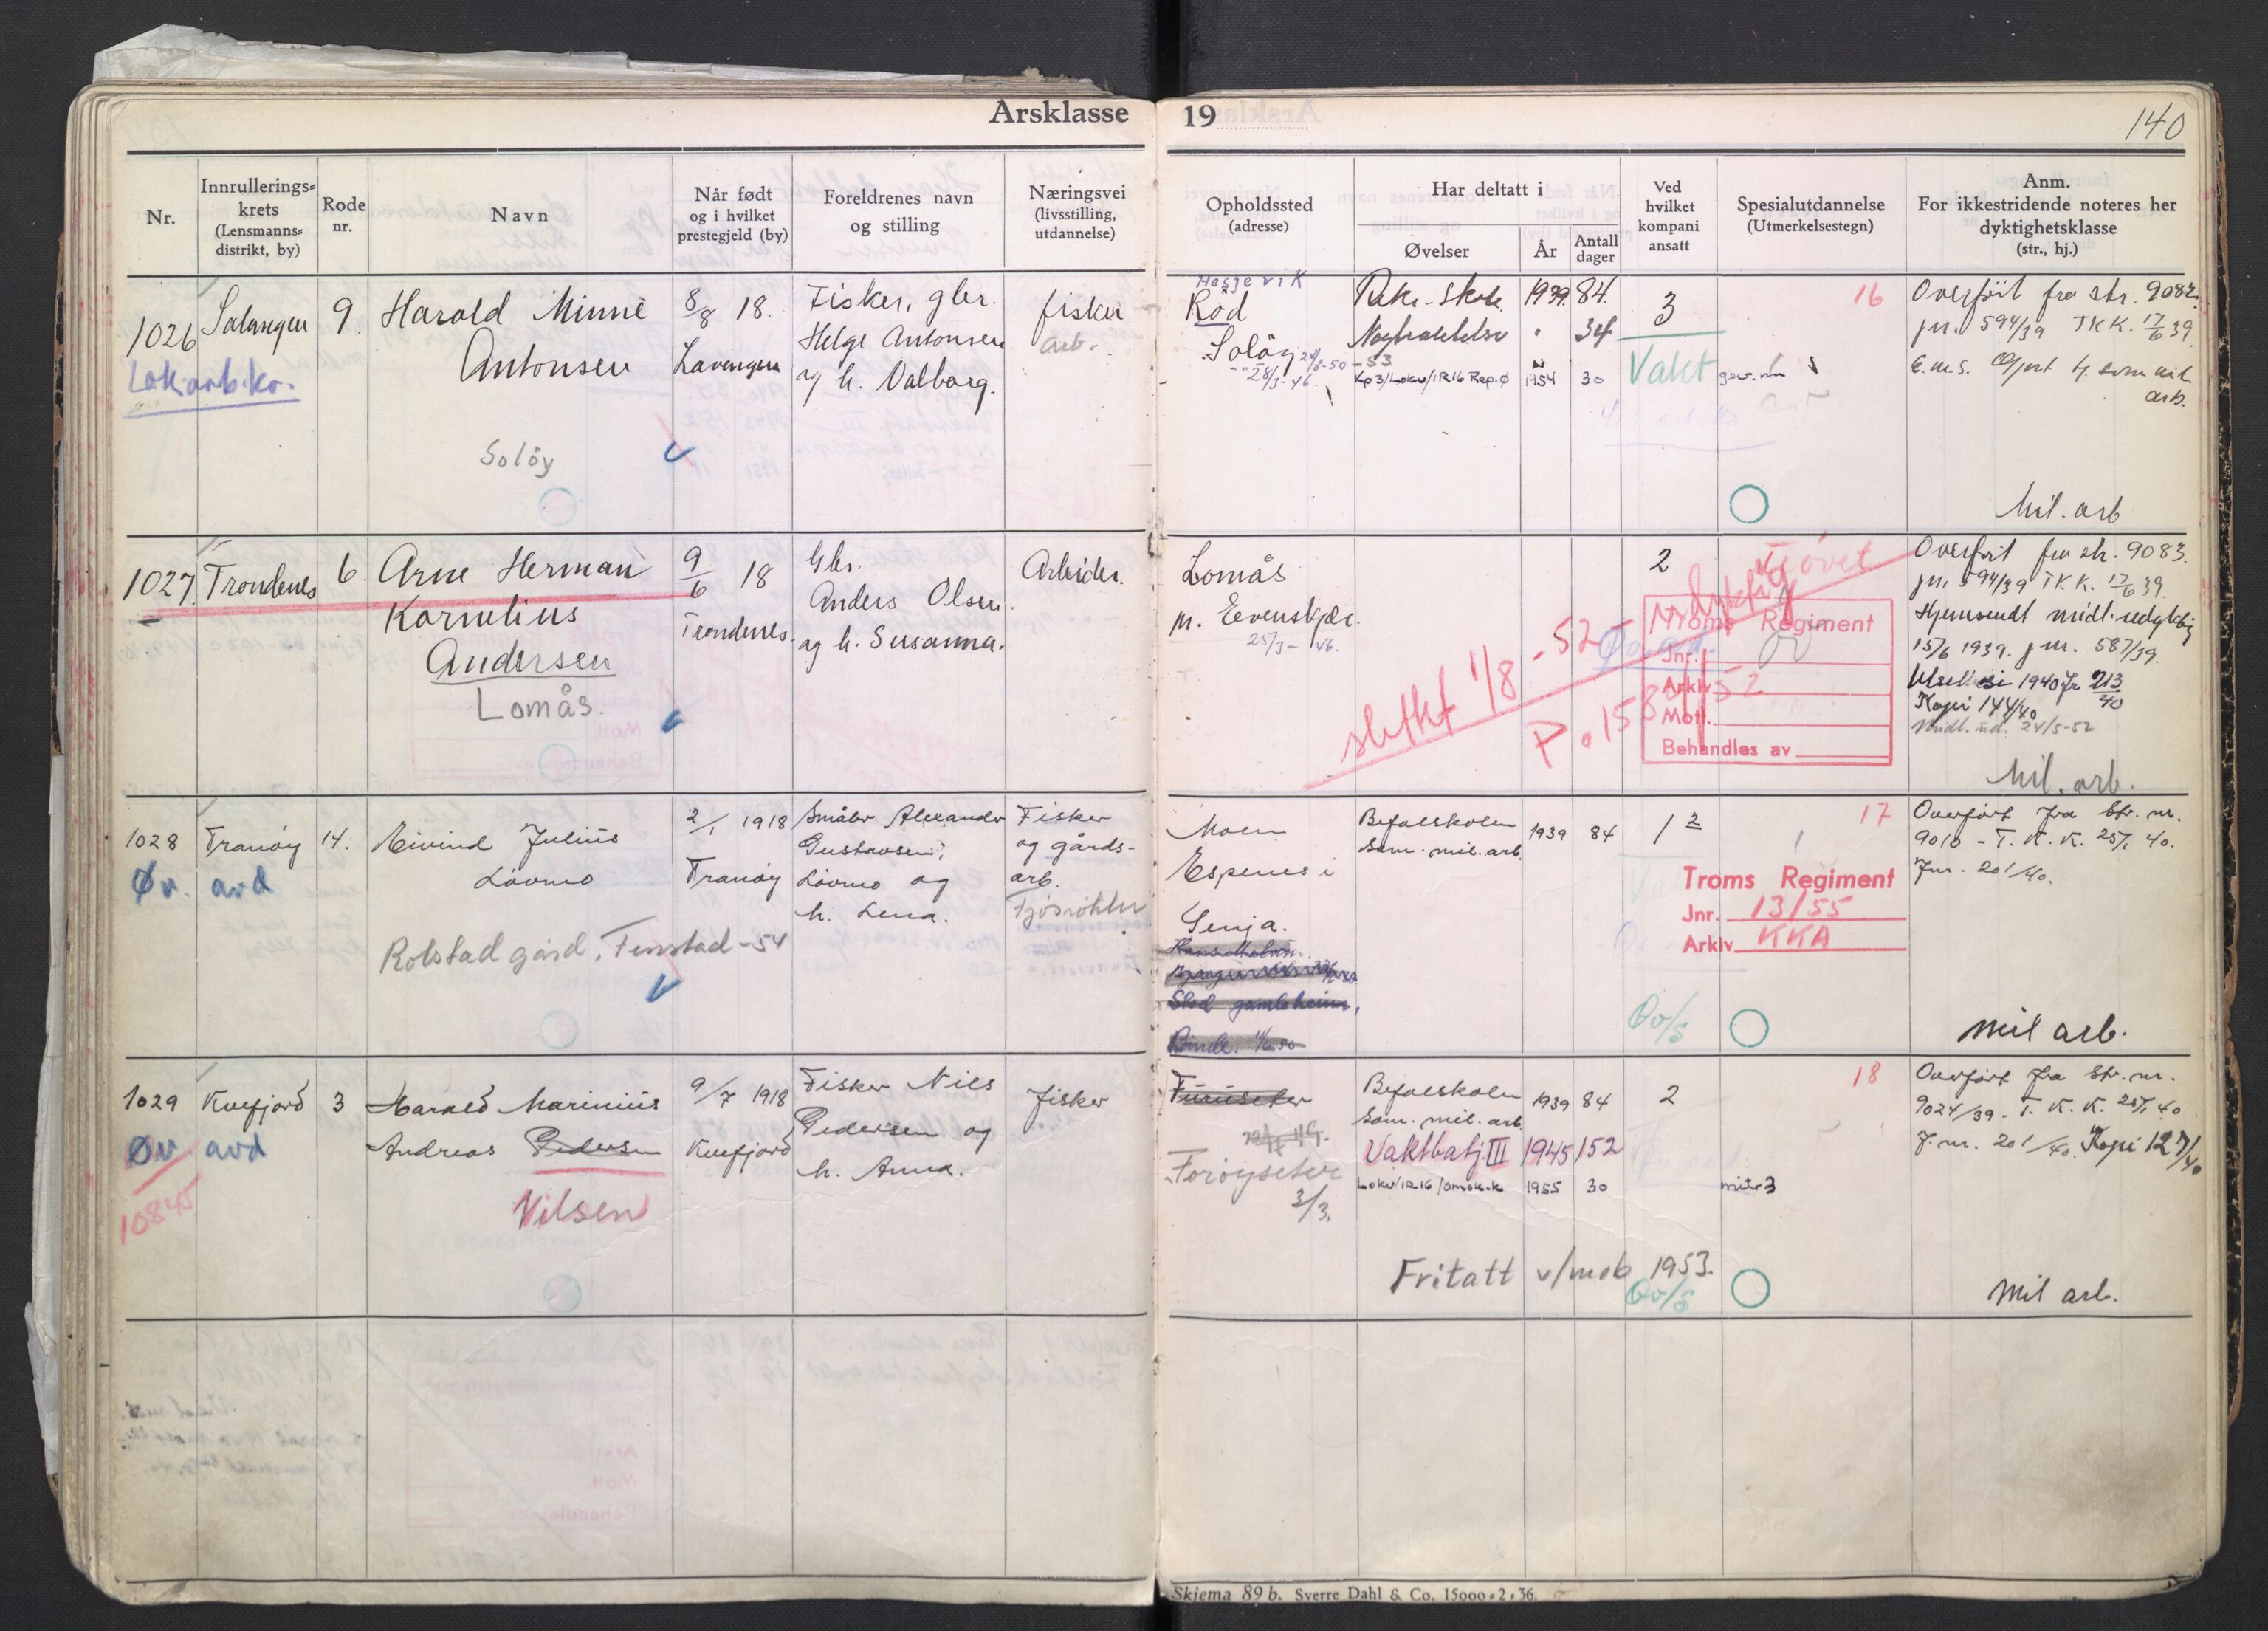 Årsklasse 19
140
Nr.
Innrullerings-
krets
(Lensmanns-
distrikt, by)
Rode
nr.
Navn
Når født
og i hvilket
prestegjeld (by)
Foreldrenes navn
og stilling
Næringsvei
(livsstilling,
utdannelse)
Opholdssted
(adresse)
Har deltatt i
Øvelser
År
Antall
dager
Ved
hvilket
kompani
ansatt
Spesialutdannelse
(Utmerkelsestegn)
Anm.
For ikkestridende noteres her
dyktighetsklasse
(str., hj.)
1026
Lok.arb.ko.
Salangen
9
Harald Minne
Antonsen
Soløy
8/8 18.
Lavangen
Fisker, gbr.
Helge Antonsen
og h. Valborg.
fisker
arb.
Rød
Soløy
28/3-46.
Rekr. skole 1939 84
34
Kp 3/Lokv/IR16 Rep.ø 1954 30
3
Vakt
16
Overført fra str. 9082.
jnr. 594/39 TKK. 17/6 39.
Mil. arb
1027.
Trondenes
6.
Arne Herman
Kornelius
Andersen
Lomås.
9/6 18
Trondenes.
Gbr.
Anders Olsen
og h. Susanna.
Arbeider.
Lomås
p. Evenskjær.
25/3-46.
2
slettet 1/8-52
Troms Regiment
Jnr.
Arkiv
Mott.
Behandles av
Overført fra str. 9083.
jnr. 594/39 TKK. 17/6 39.
Hjemsendt midl. udyktig
15/6 1939. jnr. 587/39.
Kopi 144/40
Midl. ud. 24/5-52
Mil. arb.
1028
Øv. avd
Tranøy
14.
Eivind Julius
Løvmo
Rolstad gård, Fenstad-54
2/1 1918
Tranøy
Småbr Alexander
Gustavsen,
Løvmo og
h. Lena.
Fisker
og gårds-
arb.
Fjøsrøkter
Moen
Espenes i
Senja.
Befalskolen
som. mil. arb. 1939 84
1 2
17
Troms Regiment
Jnr. 13/55
Arkiv KKA
Øv/S
Overført fra Str. nr.
9010 - T.K.K. 25/1 40.
Jnr. 201/40.
Mil arb.
1029
Øv avd
10845
Kvefjord
3
Harald Marinius
Andreas Pedersen
Nilsen
9/7 1918
Kvefjord
Fisker Nils
Pedersen og
h. Anna.
fisker
Furuseter
Forøyseter
3/3.
Befalskolen
som. mil. arb. 1939 84
Vaktbatj. III 1945 152
Lokv/IR16/omsk.k 1955 30
2
mitr 3
18
Fritatt v/mob 1953.
Øv/S
Overført fra Str. nr.
9024/39 - T.K.K. 25/1 40
J.nr. 201/40. Kopi 127/40
Mil arb.
Skjema 89 b. Sverre Dahl & Co. 15000-2-36.